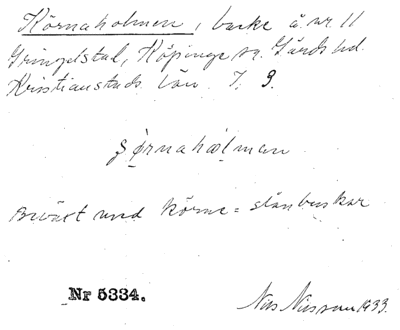 Körnaholmen, backe å nr 11
Gringelstal, Köpinge sn. Gärds hd.
Kristianstads län. J. 9.
ʒörnahålman
Beväxt med körne = slånbuskar
Nr 5334.
Nils Nilsson 1933.